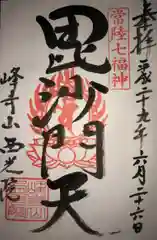 奉拝 平成二十九年六月二十六日
常陸七福神
毘沙門天
峰寺山西光院